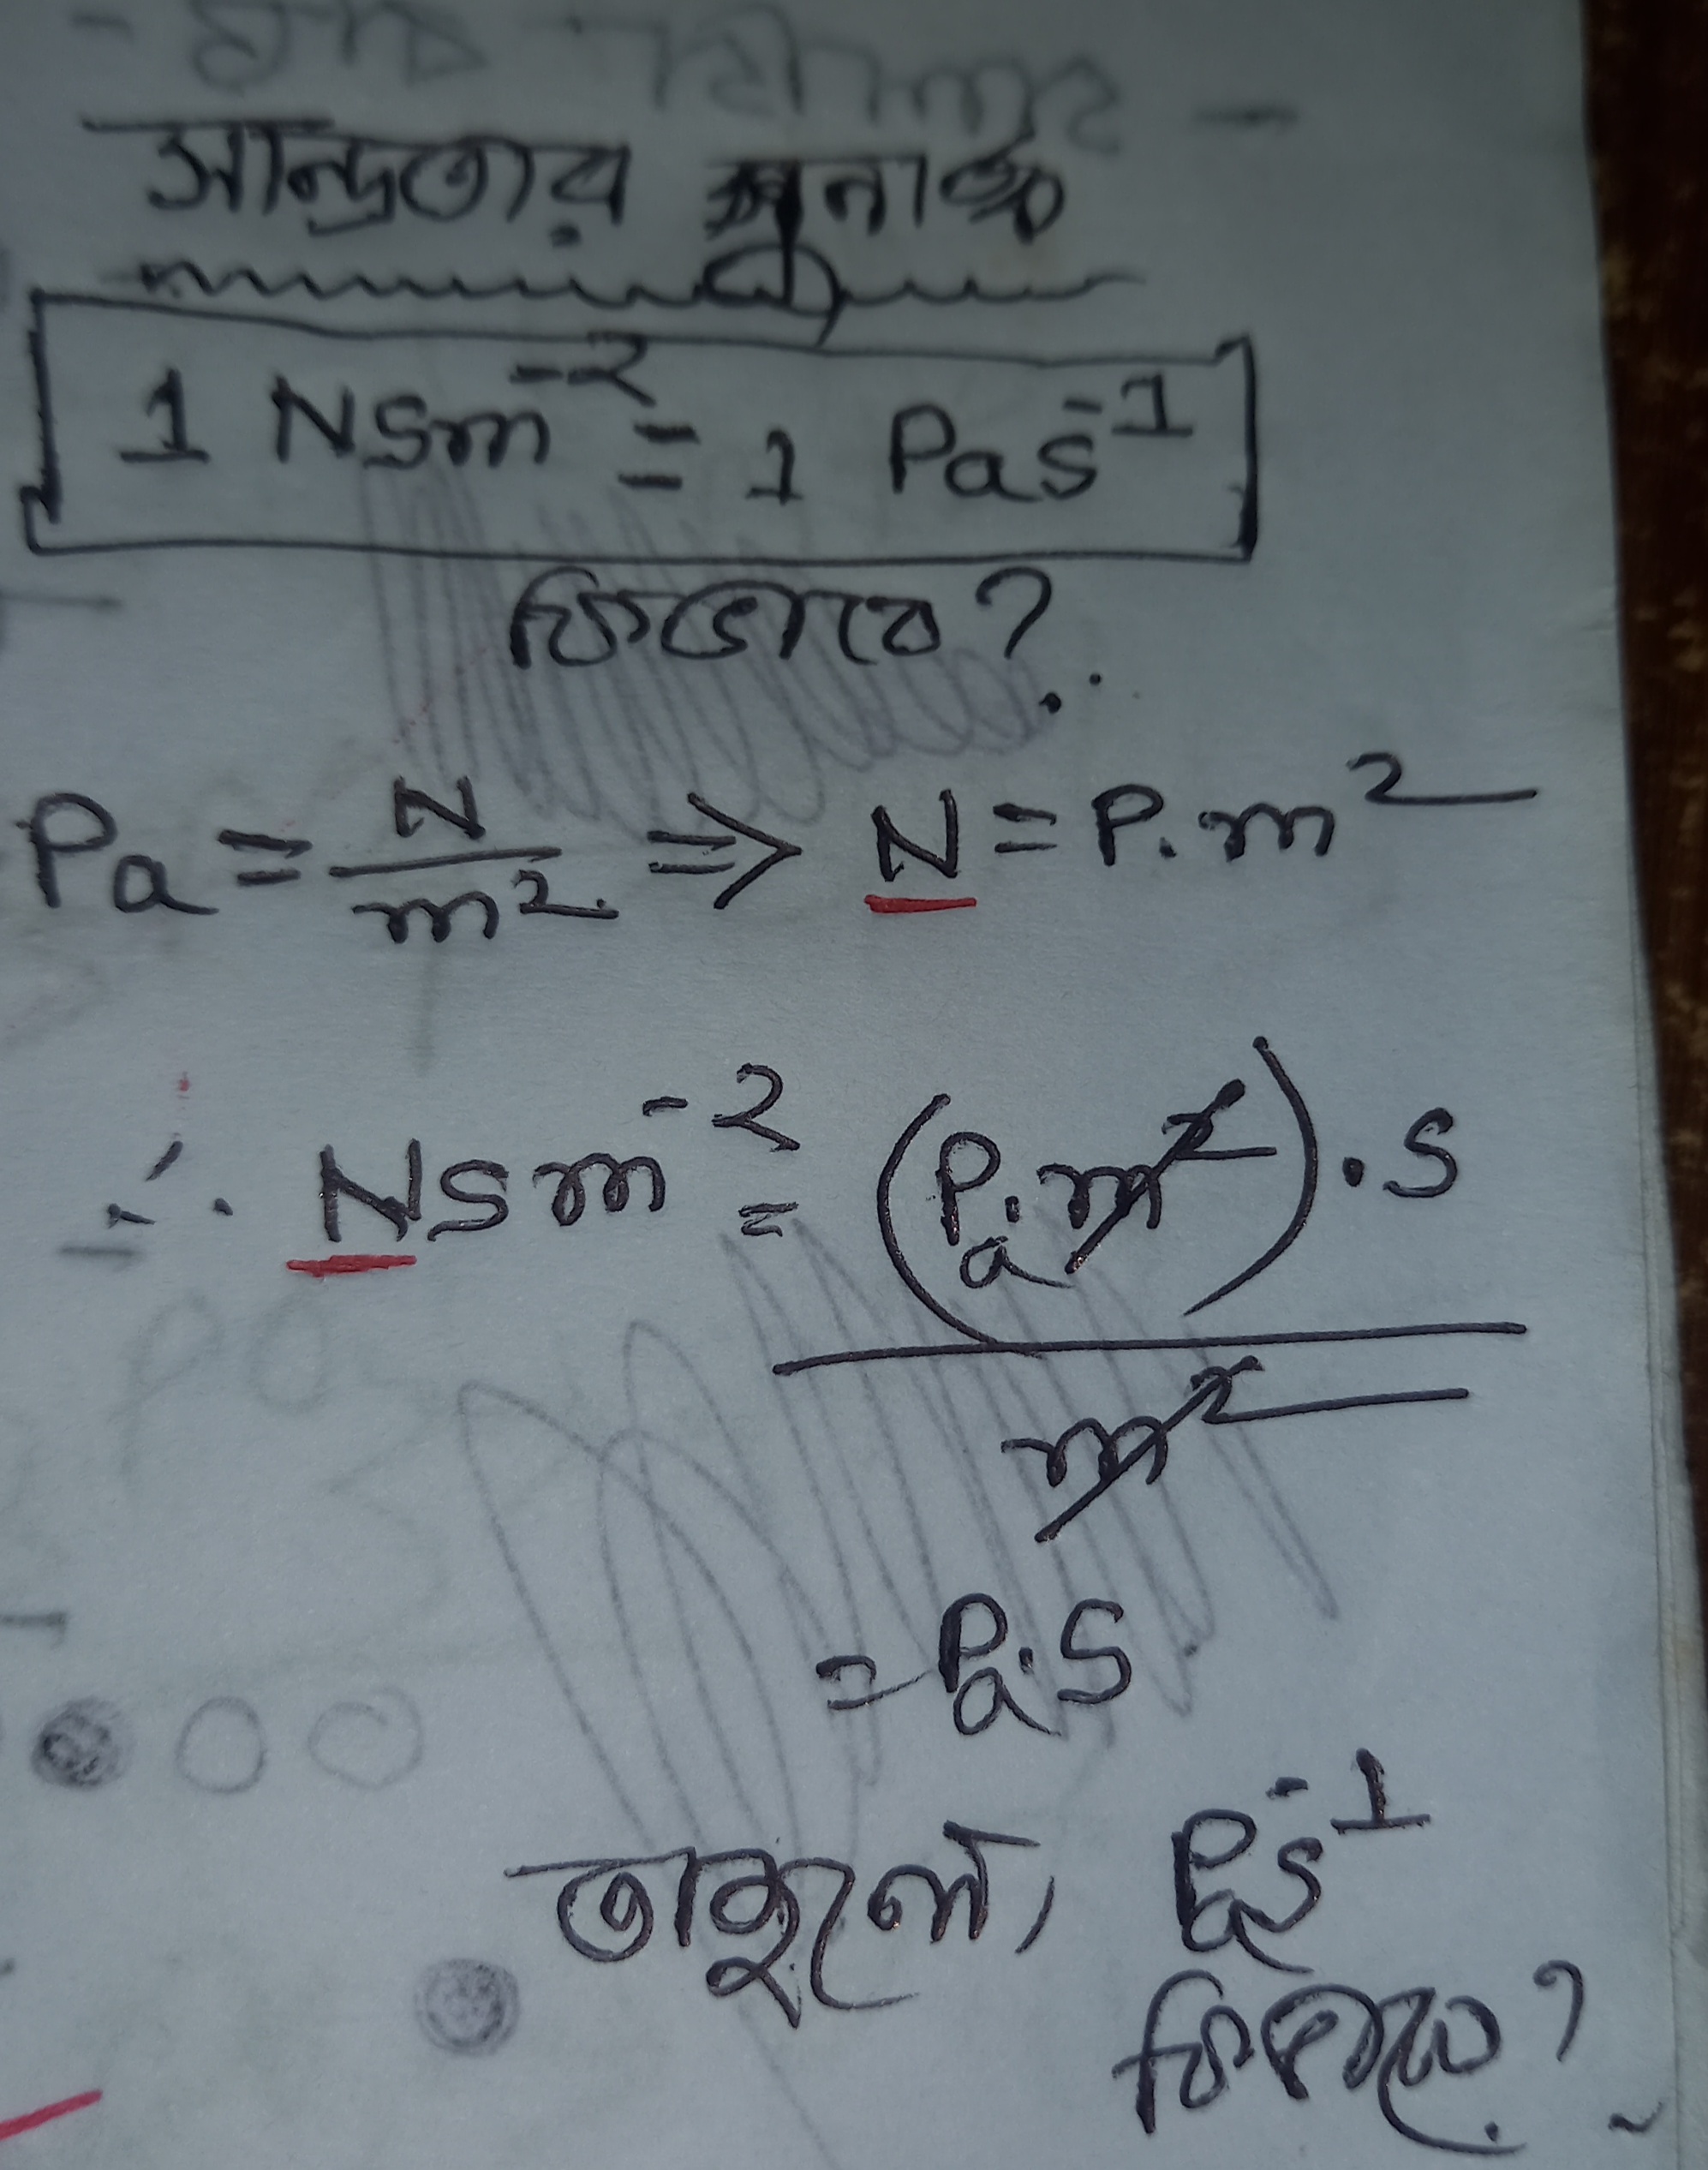 সান্দ্রতার গুনাঙ্ক
1 Nsm⁻² = 1 Pas⁻¹
কিভাবে?
Pa = N/m² ⇒ N = P.m²
∴ Nsm⁻² = (Pa.m²).s / m²
= Pa.S
তাহলে, Pas⁻¹
কিভাবে?